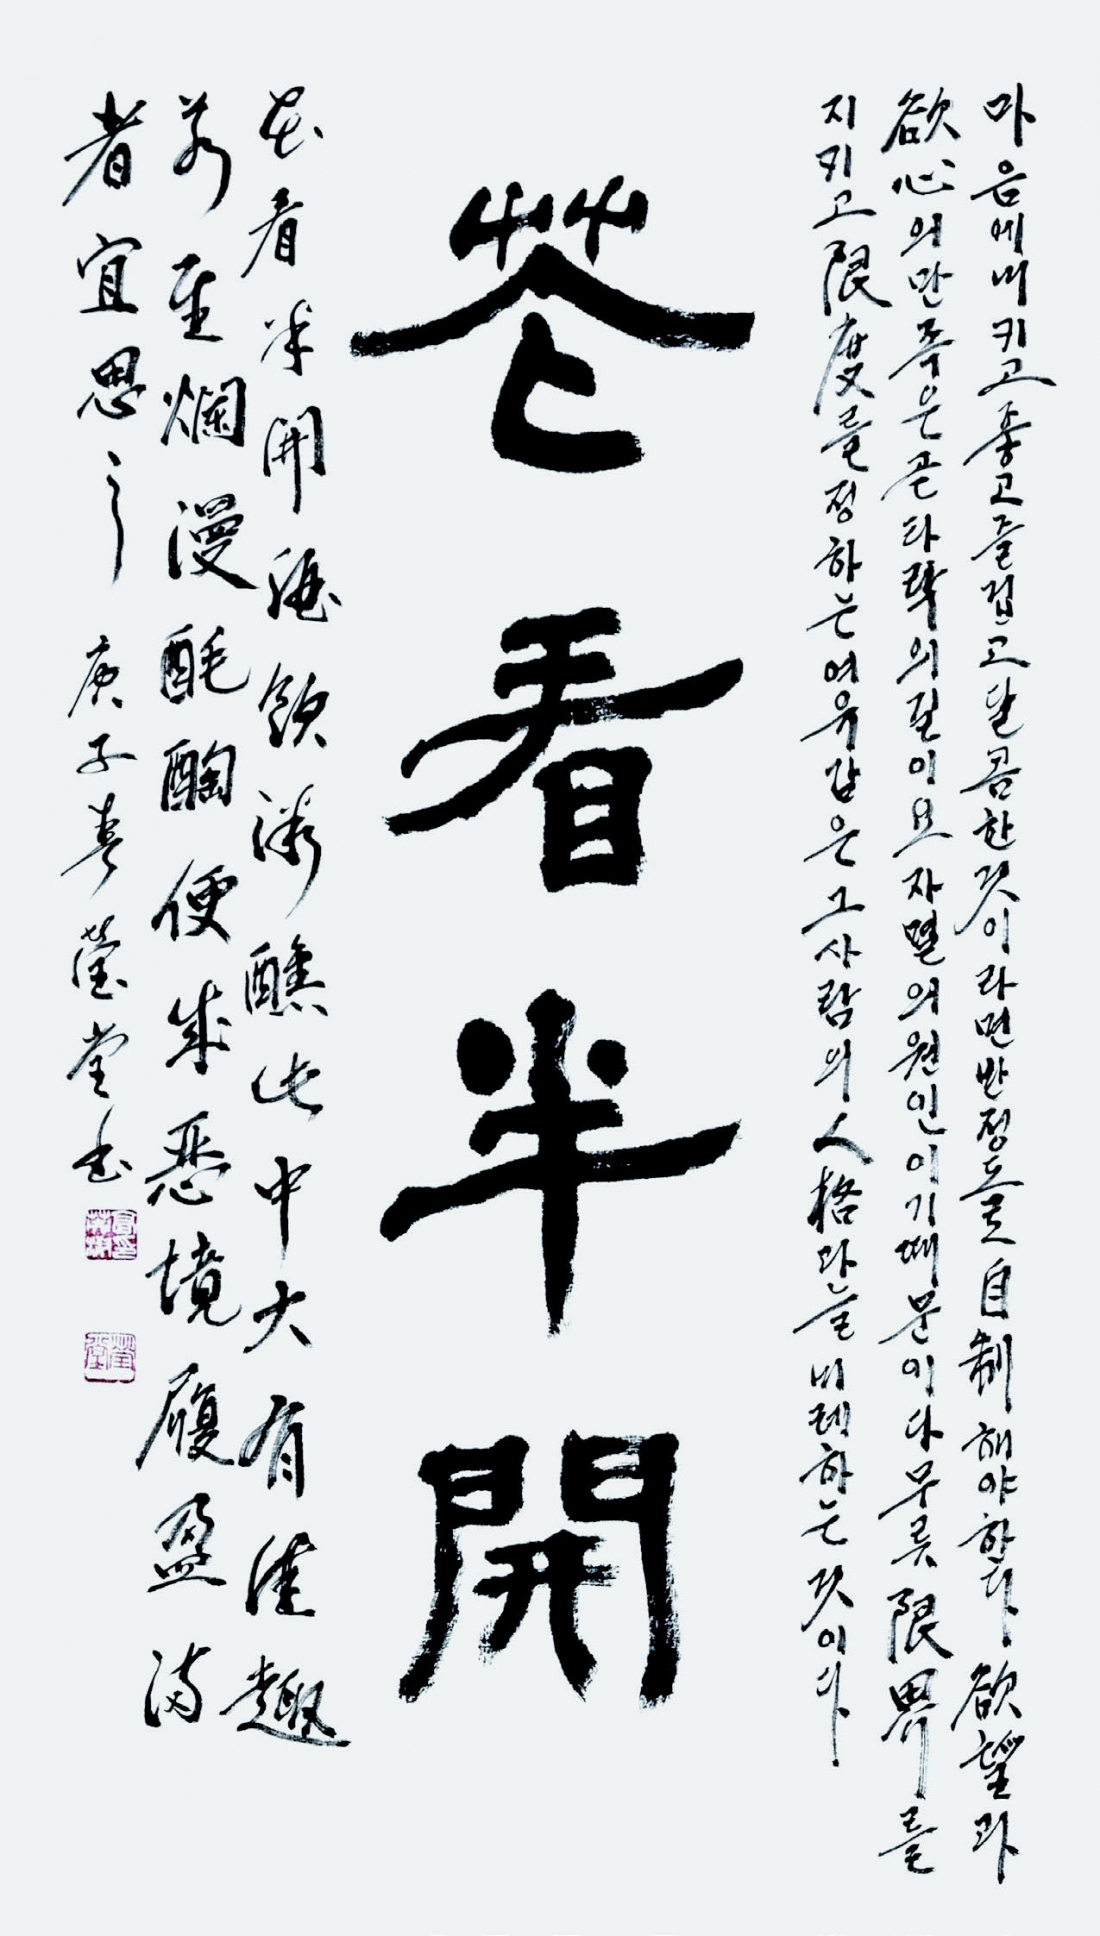 마음에내키고좋고즐겁고달콤한것이라면반정도로自制해야한다欲望과
欲心의만족은곧타락의길이요자멸의원인이기때문이다무릇限界를
지키고限度를정하는여유감은그사람의人格과늘비례하는것이다
花看半開
花看半開酒飮微醺此中大有佳趣
若至爛漫酕醄便成惡境履盈滿
者宜思之 庚子春瑩堂書
瑩堂